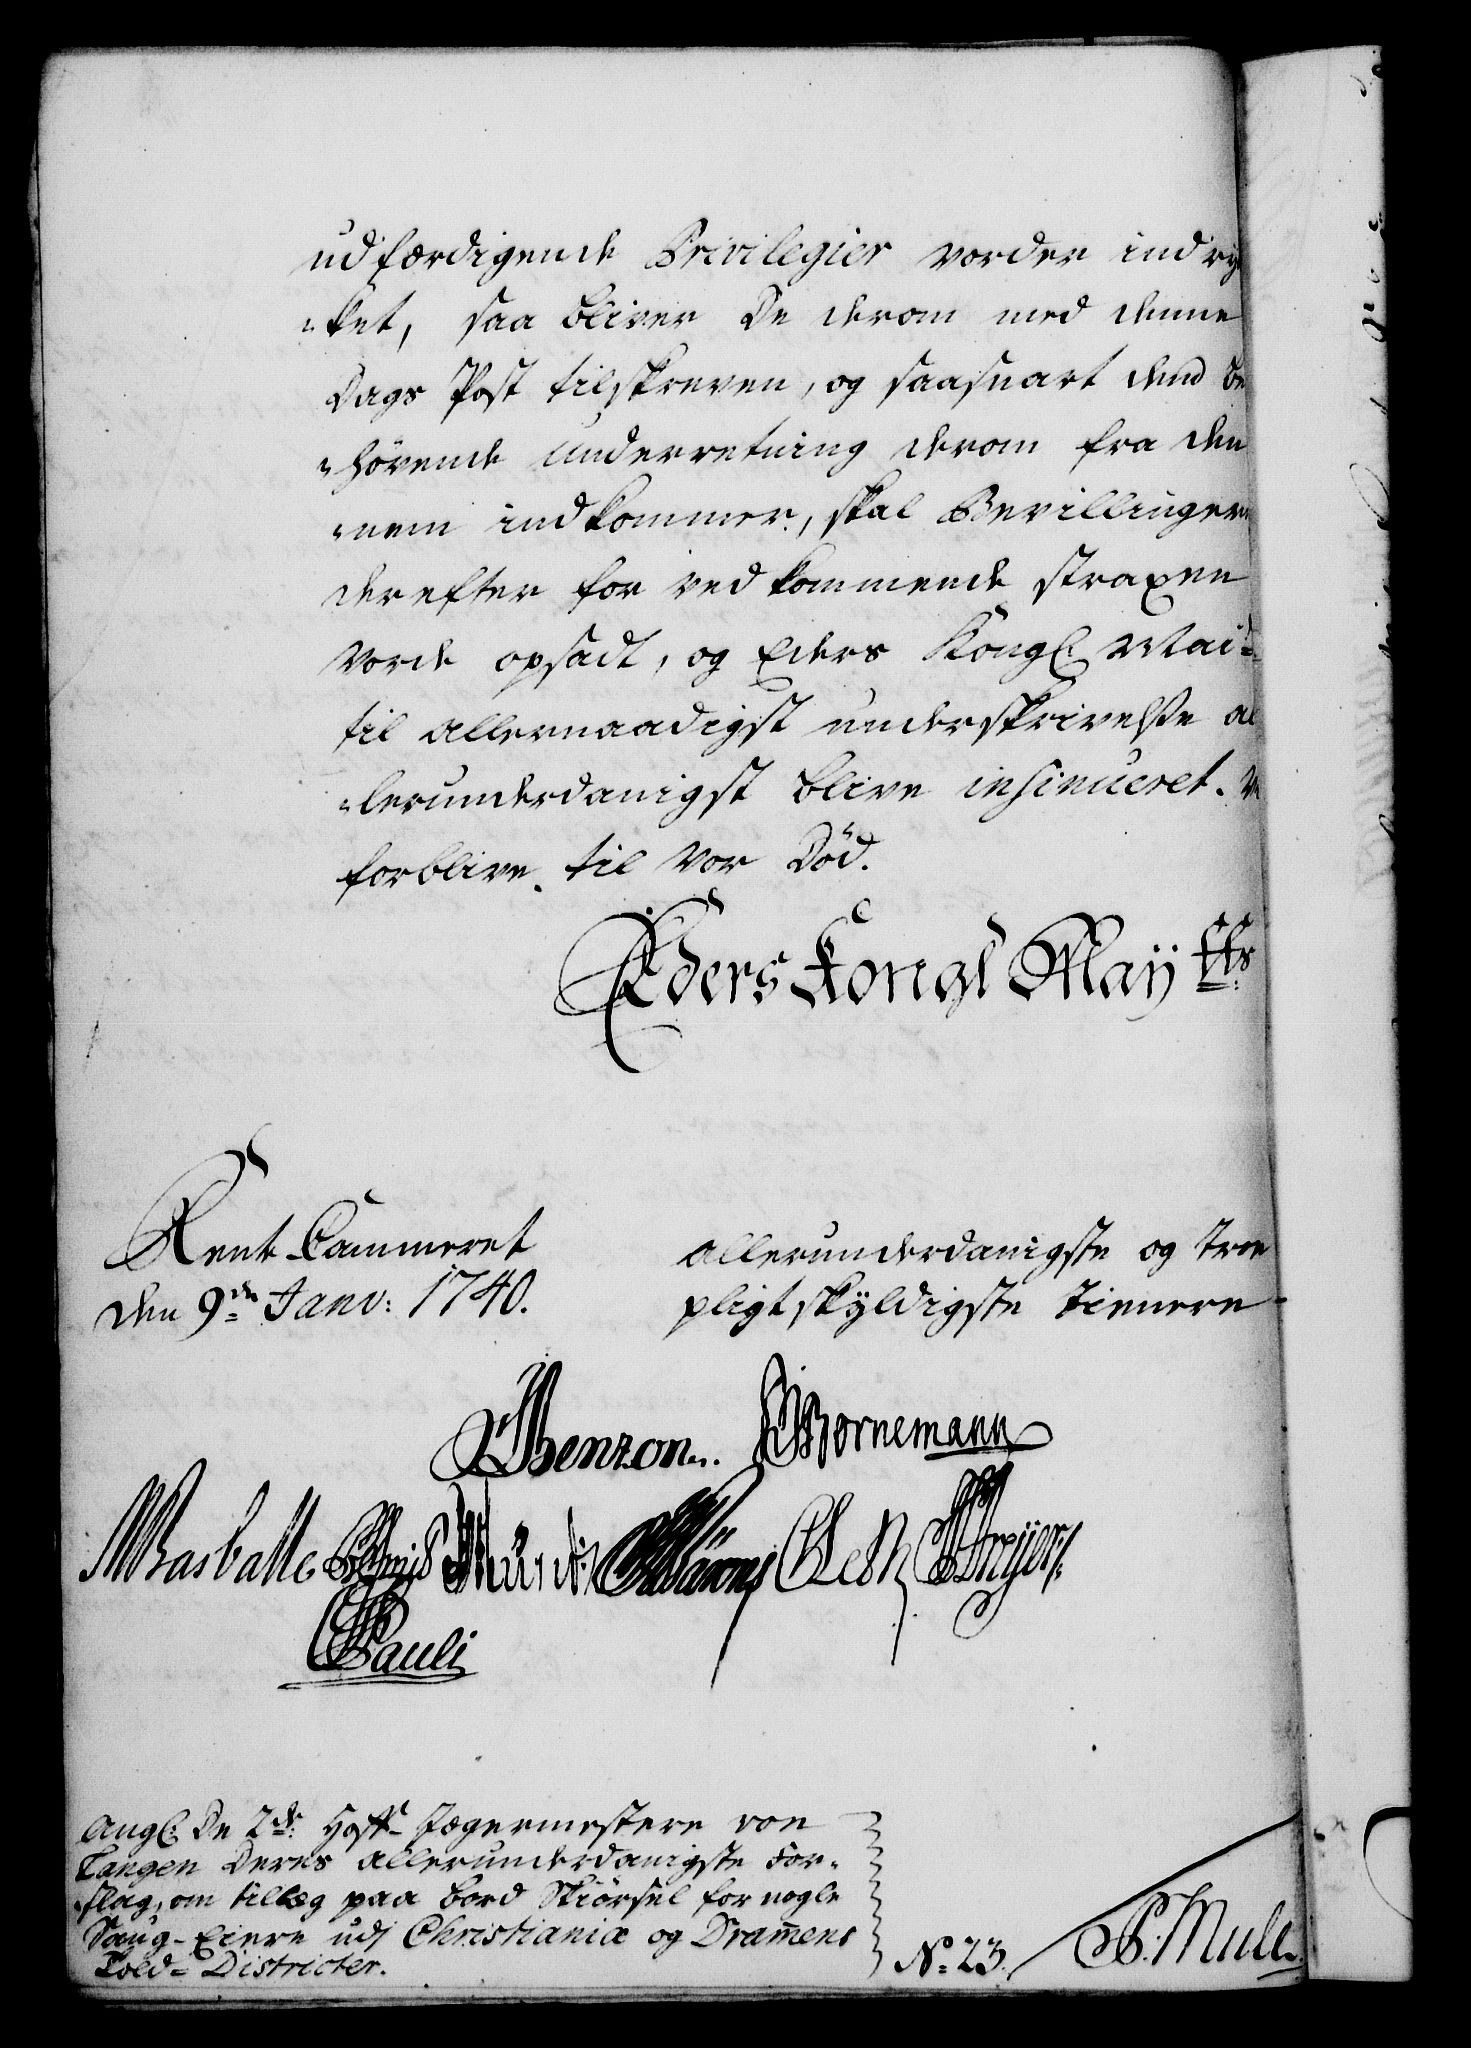 udfærdigende Privilegier vorder indry
-ket, saa bliver De derom med denne
Dags Post tilskreven, og saasnart dend be
-hørende underretning derom fra den
-nem indkommer, skal Bevillingern
derefter for vedkommende straxen
vorde opsadt, og Eders Kongl. Mai:ts
til allernaadigst underskrivelse al
-lerunderdanigst blive insinueret. Vi
forblive til vor Död.
Eders Kongl Mayтts
Rente Cammeret
den 9de Janv: 1740.
allerunderdanigste og troe
pligtskyldigste tienere
Benzon. Bornemann
Basballe Münch
Pauli
Angl. De 2de Hoff-Jægermestere von
Langen Deres allerunderdanigste For-
-slag, om tillæg paa bord Skiörsel for nogle
Saug-Eiere udj Christiania og Dramens
Told-Districter.
No. 23.
Mull